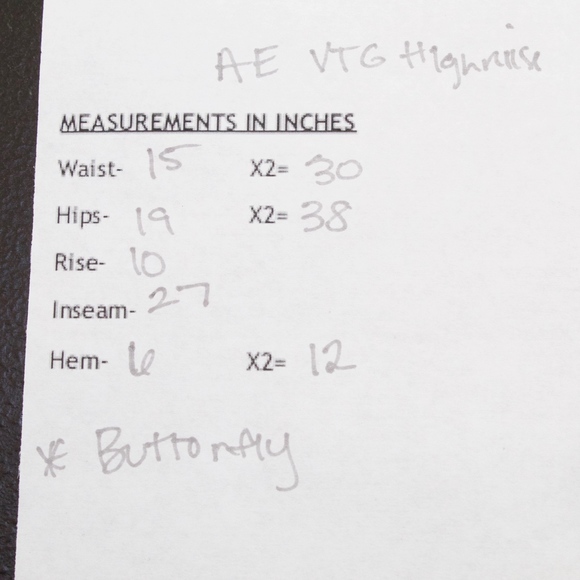 AE VTG Highriise
MEASUREMENTS IN INCHES
Waist- 15 X2= 30
Hips- 19 X2= 38
Rise- 10
Inseam- 27
Hem- 6 X2= 12
* Buttonfly